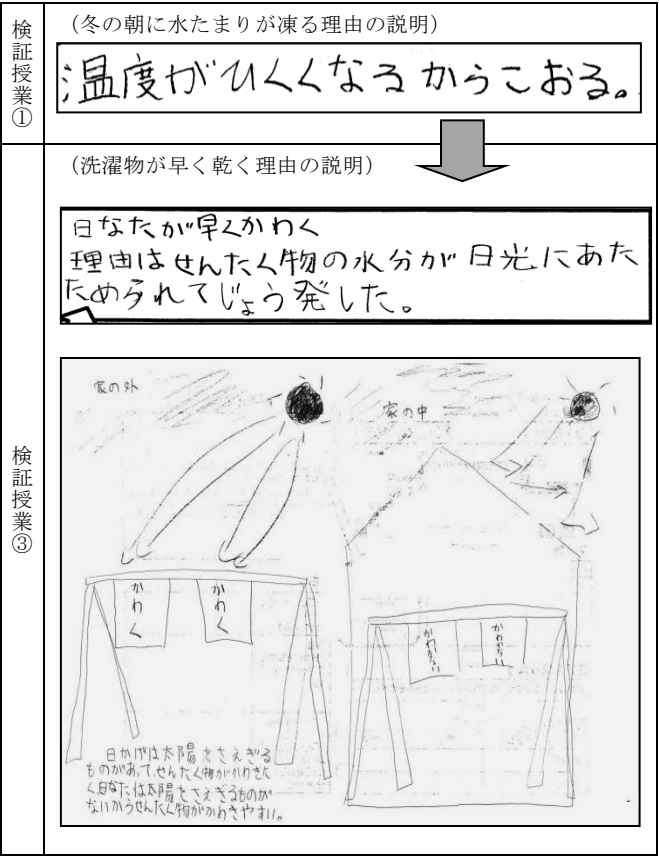 検証授業①
（冬の朝に水たまりが凍る理由の説明）
温度がひくくなるからこおる。
検証授業③
（洗濯物が早く乾く理由の説明）
日なたが早くかわく
理由はせんたく物の水分が日光にあた
ためられてじょう発した。
家の外
家の中
かわく
かわく
かわかない
かわかない
日かげは太陽をさえぎる
ものがあって、せんたく物がかわきた
く日なたは太陽をさえぎるものが
ないからせんたく物がかわきやすい。